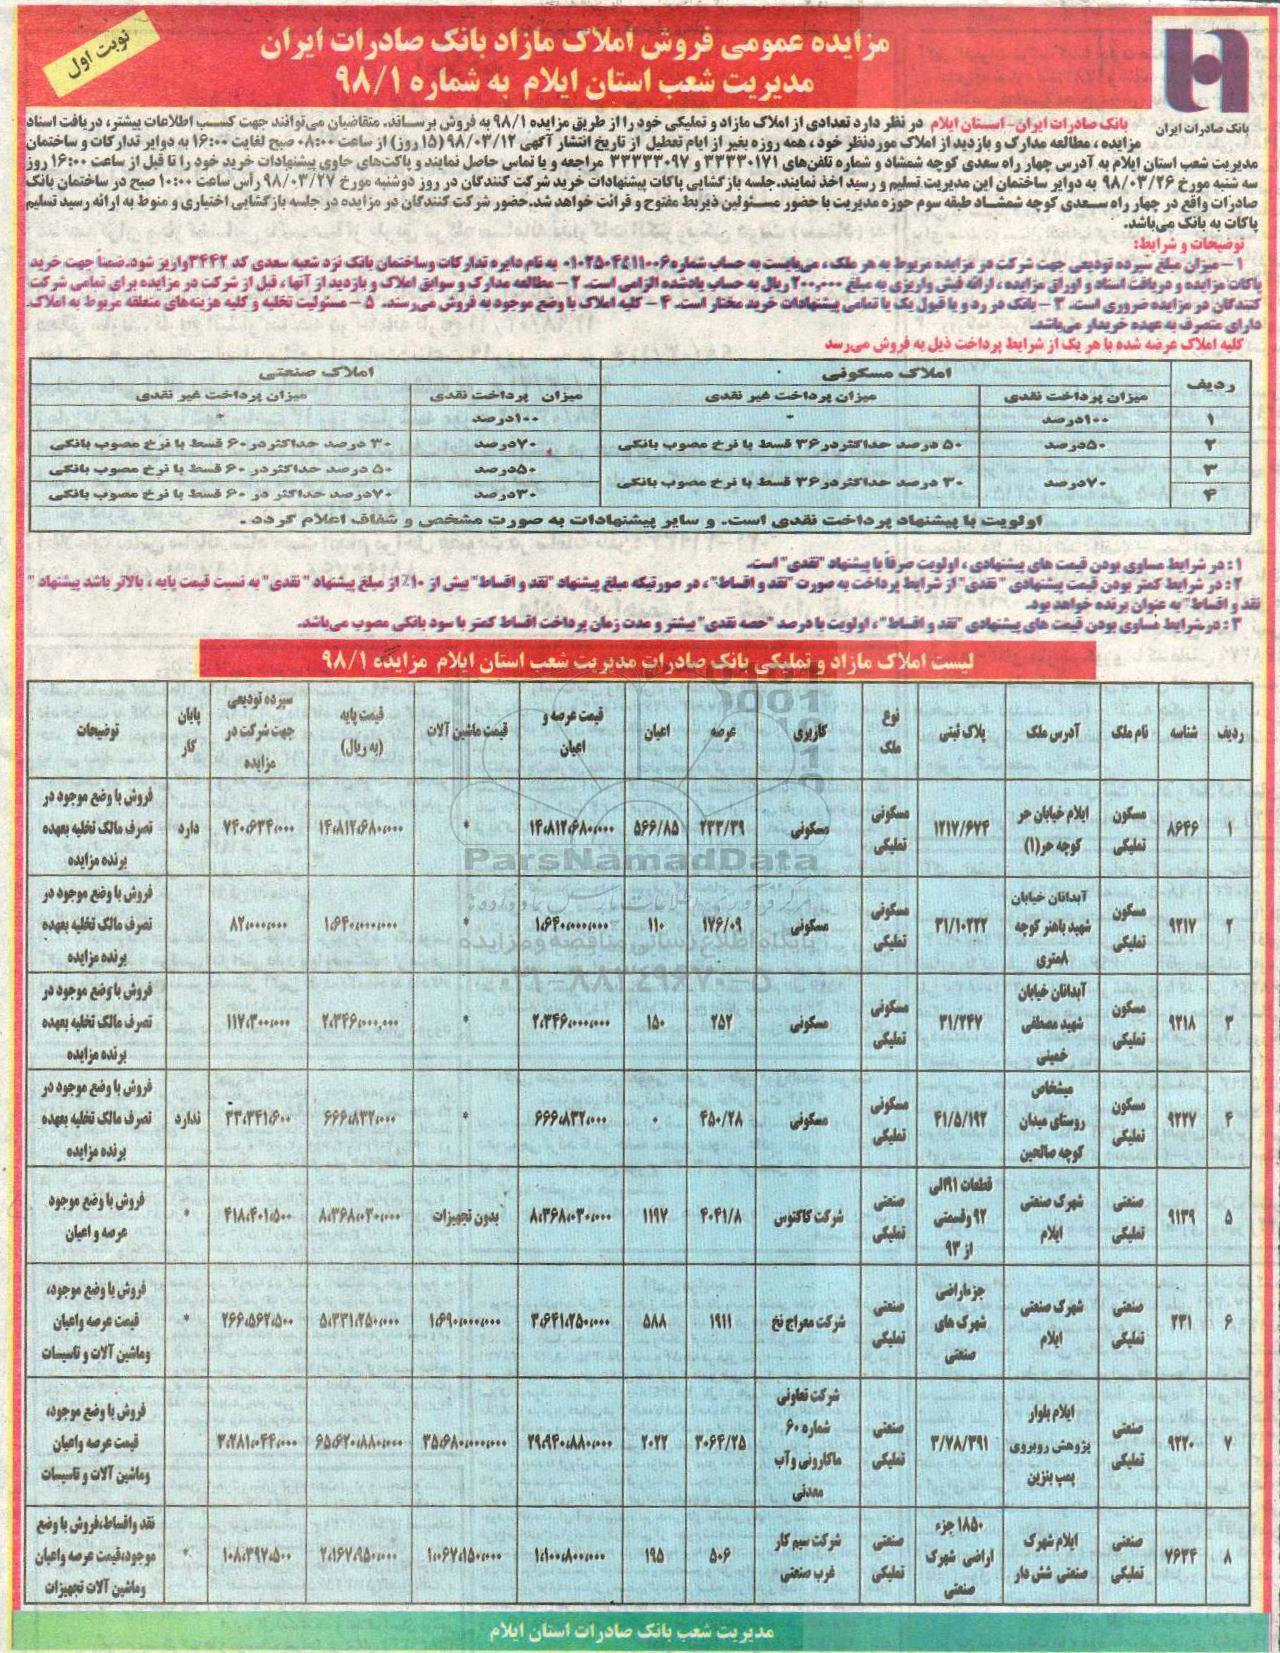 مزایده عمومی فروش املاک مازاد بانک صادرات ایران
مدیریت شعب استان ایلام به شماره ۹۸/۱
نوبت اول
بانک صادرات ایران
بانک صادرات ایران- استان ایلام در نظر دارد تعدادی از املاک مازاد و تملیکی خود را از طریق مزایده ۹۸/۱ به فروش برساند. متقاضیان می‌توانند جهت کسب اطلاعات بیشتر، دریافت اسناد
مزایده ، مطالعه مدارک و بازدید از املاک موردنظر خود ، همه روزه بغیر از ایام تعطیل از تاریخ انتشار آگهی ۹۸/۰۳/۱۲ (۱۵ روز) از ساعت ۰۸:۰۰ صبح لغایت ۱۶:۰۰ به دوایر تدارکات و ساختمان
مدیریت شعب استان ایلام به آدرس چهار راه سعدی کوچه شمشاد و شماره تلفن‌های ۳۳۳۳۰۱۷۱ و ۳۳۳۳۳۰۹۷ مراجعه و یا تماس حاصل نمایند و پاکت‌های حاوی پیشنهادات خرید خود را تا قبل از ساعت ۱۶:۰۰ روز
سه شنبه مورخ ۹۸/۰۳/۲۶ به دوایر ساختمان این مدیریت تسلیم و رسید اخذ نمایند.جلسه بازگشایی پاکات پیشنهادات خرید شرکت کنندگان در روز دوشنبه مورخ ۹۸/۰۳/۲۷ رأس ساعت ۱۰:۰۰ صبح در ساختمان بانک
صادرات واقع در چهار راه سعدی کوچه شمشاد طبقه سوم حوزه مدیریت با حضور مسئولین ذیربط مفتوح و قرائت خواهد شد.حضور شرکت کنندگان در مزایده در جلسه بازگشایی اختیاری و منوط به ارائه رسید تسلیم
پاکات به بانک می‌باشد.
توضیحات و شرایط:
۱ – میزان مبلغ سپرده تودیعی جهت شرکت در مزایده مربوط به هر ملک ، می‌بایست به حساب شماره ۰۱۰۲۵۰۴۵۱۱۰۰۶ به نام دایره تدارکات وساختمان بانک نزد شعبه سعدی کد ۳۴۴۲ واریز شود.ضمنا جهت خرید
پاکات مزایده و دریافت اسناد و اوراق مزایده ، ارائه فیش واریزی به مبلغ ۲۰۰,۰۰۰ ریال به حساب یادشده الزامی است. ۲ – مطالعه مدارک و سوابق املاک و بازدید از آنها، قبل از شرکت در مزایده برای تمامی شرکت
کنندگان در مزایده ضروری است. ۳ – بانک در رد و یا قبول یک یا تمامی پیشنهادات خرید مختار است. ۴ – کلیه املاک با وضع موجود به فروش می‌رسند. ۵ – مسئولیت تخلیه و کلیه هزینه‌های متعلقه مربوط به املاک
دارای متصرف به عهده خریدار می‌باشد.
کلیه املاک عرضه شده با هر یک از شرایط پرداخت ذیل به فروش می‌رسد
ردیف املاک مسکونی املاک صنعتی
میزان پرداخت نقدی میزان پرداخت غیر نقدی میزان پرداخت نقدی میزان پرداخت غیر نقدی
۱ ۱۰۰درصد - ۱۰۰درصد -
۲ ۵۰درصد ۵۰ درصد حداکثردر ۳۶ قسط با نرخ مصوب بانکی ۷۰درصد ۳۰ درصد حداکثردر ۶۰ قسط با نرخ مصوب بانکی
۳ ۷۰درصد ۳۰ درصد حداکثردر ۳۶ قسط با نرخ مصوب بانکی ۵۰درصد ۵۰ درصد حداکثردر ۶۰ قسط با نرخ مصوب بانکی
۴ ۳۰درصد ۷۰درصد حداکثر در ۶۰ قسط با نرخ مصوب بانکی
اولویت با پیشنهاد پرداخت نقدی است. و سایر پیشنهادات به صورت مشخص و شفاف اعلام گردد .
۱ : در شرایط مساوی بودن قیمت های پیشنهادی ، اولویت صرفاً با پیشنهاد "نقدی" است.
۲ : در شرایط کمتر بودن قیمت پیشنهادی "نقدی" از شرایط پرداخت به صورت "نقد و اقساط" ، در صورتیکه مبلغ پیشنهاد "نقد و اقساط" بیش از ۱۰٪ از مبلغ پیشنهاد "نقدی" به نسبت قیمت پایه ، بالاتر باشد پیشنهاد "
نقد و اقساط" به عنوان برنده خواهد بود.
۳ : درشرایط مساوی بودن قیمت های پیشنهادی "نقد و اقساط" ، اولویت با درصد "حصه نقدی" بیشتر و مدت زمان پرداخت اقساط کمتر با سود بانکی مصوب می‌باشد.
لیست املاک مازاد و تملیکی بانک صادرات مدیریت شعب استان ایلام مزایده ۹۸/۱
ردیف شناسه نام ملک آدرس ملک پلاک ثبتی نوع ملک کاربری عرصه اعیان قیمت عرصه و اعیان قیمت ماشین آلات قیمت پایه (به ریال) سپرده تودیعی جهت شرکت در مزایده پایان کار توضیحات
۱ ۸۶۴۶ مسکون تملیکی ایلام خیابان حر کوچه حر(۱) ۱۲۱۷/۶۷۴ مسکونی تملیکی مسکونی ۲۳۳/۳۹ ۵۶۶/۸۵ ۱۴،۸۱۲،۶۸۰،۰۰۰ * ۱۴،۸۱۲،۶۸۰،۰۰۰ ۷۴۰،۶۳۴،۰۰۰ دارد فروش با وضع موجود در تصرف مالک تخلیه بعهده برنده مزایده
۲ ۹۲۱۷ مسکون تملیکی آبدانان خیابان شهید باهنر کوچه ۸متری ۳۱/۱۰۲۲۲ مسکونی تملیکی مسکونی ۱۷۶/۰۹ ۱۱۰ ۱،۶۴۰،۰۰۰،۰۰۰ * ۱،۶۴۰،۰۰۰،۰۰۰ ۸۲،۰۰۰،۰۰۰ فروش با وضع موجود در تصرف مالک تخلیه بعهده برنده مزایده
۳ ۹۲۱۸ مسکون تملیکی آبدانان خیابان شهید مصطفی خمینی ۳۱/۲۴۷ مسکونی تملیکی مسکونی ۲۵۲ ۱۵۰ ۲،۳۴۶،۰۰۰،۰۰۰ * ۲،۳۴۶،۰۰۰,۰۰۰ ۱۱۷،۳۰۰،۰۰۰ فروش با وضع موجود در تصرف مالک تخلیه بعهده برنده مزایده
۴ ۹۲۲۷ مسکون تملیکی میشخاص روستای میدان کوچه صالحین ۴۱/۵/۱۹۲ مسکونی تملیکی مسکونی ۴۵۰/۲۸ ۰ ۶۶۶،۸۳۲،۰۰۰ * ۶۶۶،۸۳۲،۰۰۰ ۳۳،۳۴۱،۶۰۰ ندارد فروش با وضع موجود در تصرف مالک تخلیه بعهده برنده مزایده
۵ ۹۱۳۹ صنعتی تملیکی شهرک صنعتی ایلام قطعات ۹۱الی ۹۲ وقسمتی از ۹۳ صنعتی تملیکی شرکت کاکتوس ۴۰۴۱/۸ ۱۱۹۷ ۸،۳۶۸،۰۳۰،۰۰۰ بدون تجهیزات ۸،۳۶۸،۰۳۰،۰۰۰ ۴۱۸،۴۰۱،۵۰۰ * فروش با وضع موجود عرصه و اعیان
۶ ۲۳۱ صنعتی تملیکی شهرک صنعتی ایلام جزءاراضی شهرک های صنعتی صنعتی تملیکی شرکت معراج نخ ۱۹۱۱ ۵۸۸ ۳،۶۴۱،۲۵۰،۰۰۰ ۱،۶۹۰،۰۰۰،۰۰۰ ۵،۳۳۱،۲۵۰،۰۰۰ ۲۶۶،۵۶۲،۵۰۰ * فروش با وضع موجود، قیمت عرصه واعیان وماشین آلات و تاسیسات
۷ ۹۲۲۰ صنعتی تملیکی ایلام بلوار پژوهش روبروی پمپ بنزین ۳/۷۸/۳۹۱ صنعتی تملیکی شرکت تعاونی شماره ۶۰ ماکارونی وآب معدنی ۳۰۶۴/۲۵ ۲۰۲۲ ۲۹،۹۴۰،۸۸۰،۰۰۰ ۳۵،۶۸۰،۰۰۰،۰۰۰ ۶۵،۶۲۰،۸۸۰،۰۰۰ ۳،۲۸۱،۰۴۴،۰۰۰ فروش با وضع موجود، قیمت عرصه واعیان وماشین آلات و تاسیسات
۸ ۷۶۳۴ صنعتی تملیکی ایلام شهرک صنعتی شش دار ۱۸۵۰ جزء اراضی شهرک صنعتی صنعتی تملیکی شرکت سیم کار غرب صنعتی ۵۰۶ ۱۹۵ ۱،۱۰۰،۸۰۰،۰۰۰ ۱،۰۶۷،۱۵۰،۰۰۰ ۲،۱۶۷،۹۵۰،۰۰۰ ۱۰۸،۳۹۷،۵۰۰ * نقد واقساط،فروش با وضع موجود،قیمت عرصه واعیان وماشین آلات تجهیزات
ParsNamadData
پایگاه اطلاع رسانی مناقصه و مزایده
مدیریت شعب بانک صادرات استان ایلام